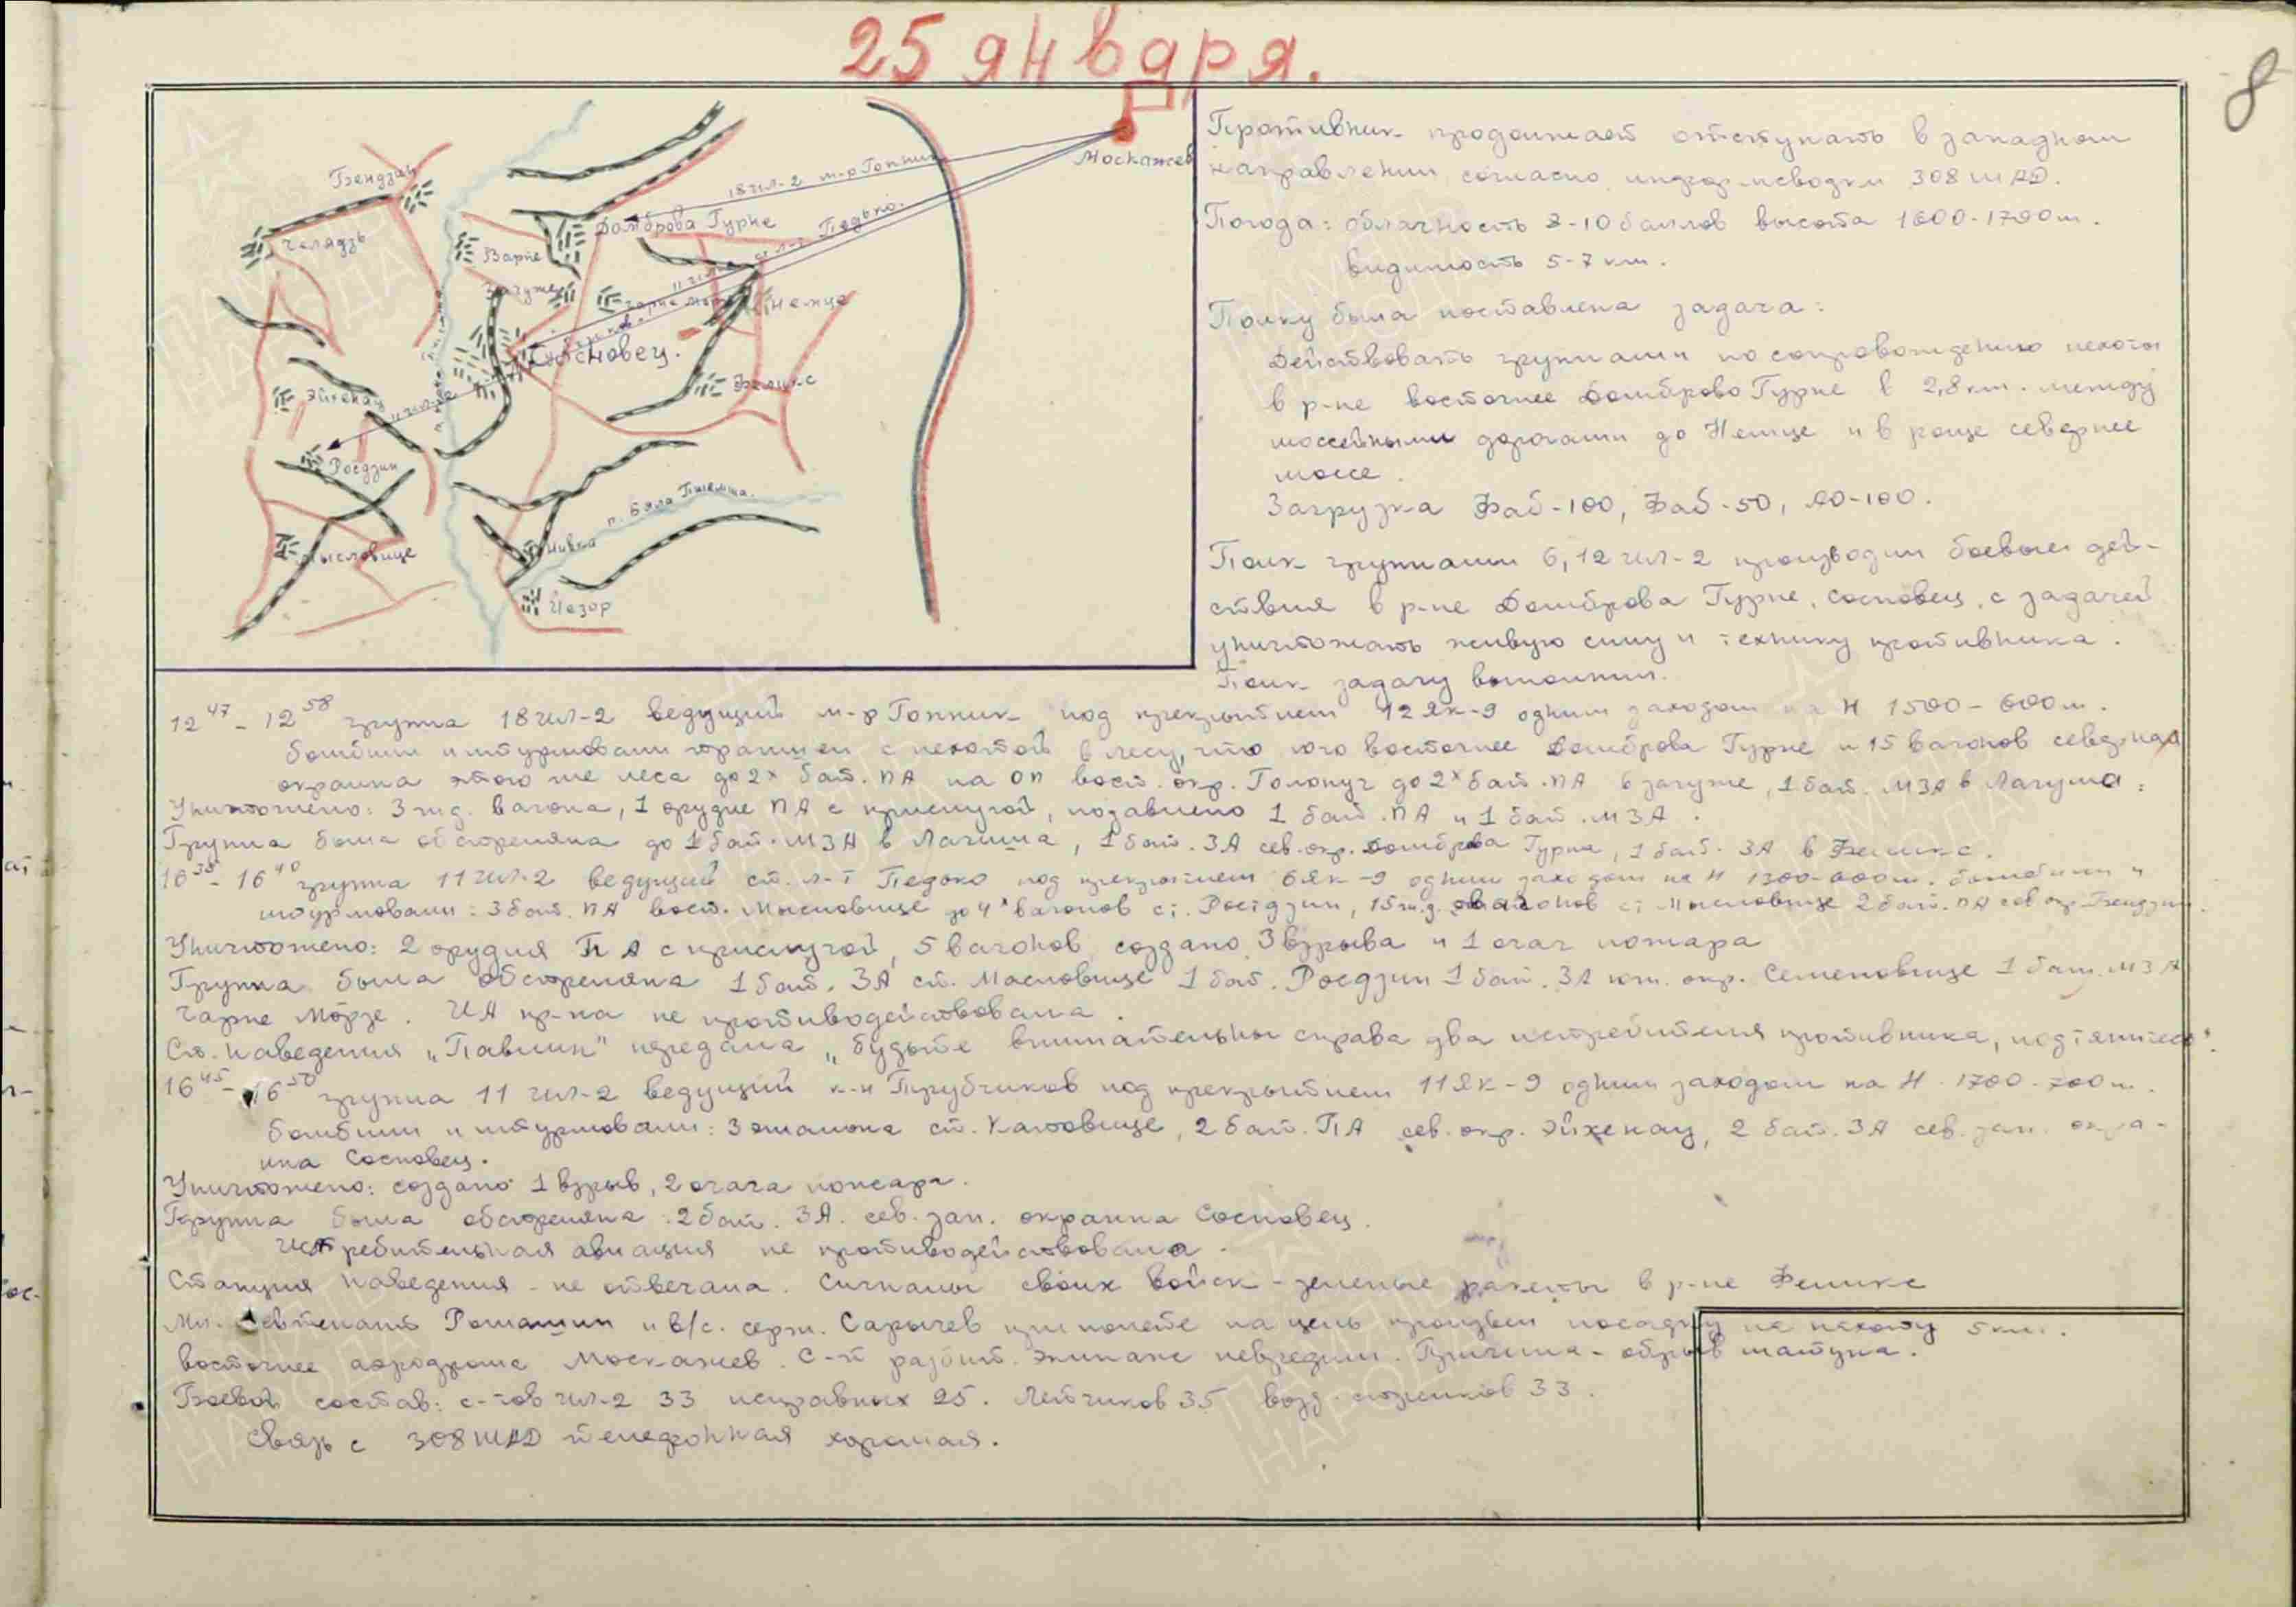 25 января.
8
Москажев
18 Ил-2 м-р Гопник
Бендзин
Домброва Гурне
Челядзь
Варпе
Педько.
11 Ил-2
Загуже
Чарне Морже
Немце
Сосновец.
Феликс
Эйхенау
11 Ил-2
Росдзин
р. Бяла Пшемша.
Нивка
Мысловице
Иезор
Противник продолжает отступать в западном
направлении согласно информсводки 308 ШАД.
Погода: облачность 8-10 баллов высота 1600-1700 м.
видимость 5-7 км.
Полку была поставлена задача:
Действовать группами по сопровождению пехоты
в р-не восточнее Домброво Гурне в 2,8 км. между
шоссейными дорогами до Немце и в роще севернее
шоссе.
Загрузка Фаб-100, Фаб-50, АО-100.
Полк группами 6, 12 Ил-2 производил боевые дей-
ствия в р-не Домброва Гурне, Сосновец, с задачей
уничтожать живую силу и технику противника.
Полк задачу выполнил.
12⁴⁷ - 12⁵⁸ группа 18 Ил-2 ведущий м-р Гопник под прекрытием 12 Як-9 одним заходом на Н 1500-600 м.
бомбили и штурмовали траншеи с пехотой в лесу, что юго восточнее Домброва Гурне и 15 вагонов северная
окраина этого же леса до 2х бат. ПА на ОП вост. окр. Голонуг до 2х бат. ПА в загуже, 1 бат. МЗА в Лагуша:
Уничтожено: 3 жд. вагона, 1 орудие ПА с прислугой, подавлено 1 бат. ПА и 1 бат. МЗА.
Группа была обстреляна до 1 бат. МЗА в Лагиша, 1 бат. ЗА сев. окр. Домброва Гурне, 1 бат. ЗА в Феликс.
16³⁵ - 16⁴⁰ группа 11 Ил-2 ведущий ст. л-т Педько под прекрытием 6 Як-9 одним заходом на Н 1300-600 м. бомбили и
штурмовали: 3 бат. ПА вост. Мысловице до 4х вагонов ст. Росдзин, 15 ж.д. вагонов ст. Мысловице 2 бат. ПА сев окр Бендзин.
Уничтожено: 2 орудия ПА с прислугой, 5 вагонов, создано 3 взрыва и 1 очаг пожара
Группа была обстреляна 1 бат. ЗА ст. Мысловице 1 бат. Росдзин 1 бат. ЗА юж. окр. Семеновице 1 бат. МЗА
Чарне Морзе. ИА пр-ка не противодействовала.
Ст. наведения „Павлин" передала „будьте внимательны справа два истребителя противника, подтянитесь".
16⁴⁵ - 16⁵⁰ группа 11 Ил-2 ведущий к-н Трубчиков под прекрытием 11 Як-9 одним заходом на Н 1700-700 м.
бомбили и штурмовали: 3 эшалона ст. Катовице, 2 бат. ПА сев. окр. Эйхенау, 2 бат. ЗА сев. зап. окра-
ина Сосновец.
Уничтожено: создано 1 взрыв, 2 очага пожара.
Группа была обстреляна: 2 бат. ЗА. сев. зап. окраина Сосновец.
Истребительная авиация не противодействовала.
Станция наведения - не отвечала. Сигналы своих войск - зеленые ракеты в р-не Феликс
Мл. Левтенант Ромашин и в/с. серж. Сарычев при полете на цель произвел посадку на 5 км.
восточнее аэродрома Москажев. С-т разбит. Экипаж невредим. Причина - обрыв шатуна.
Боевой состав: с-тов Ил-2 33 исправных 25. Летчиков 35 возд. стрелков 33.
Связь с 308 ШАД телефонная хорошая.